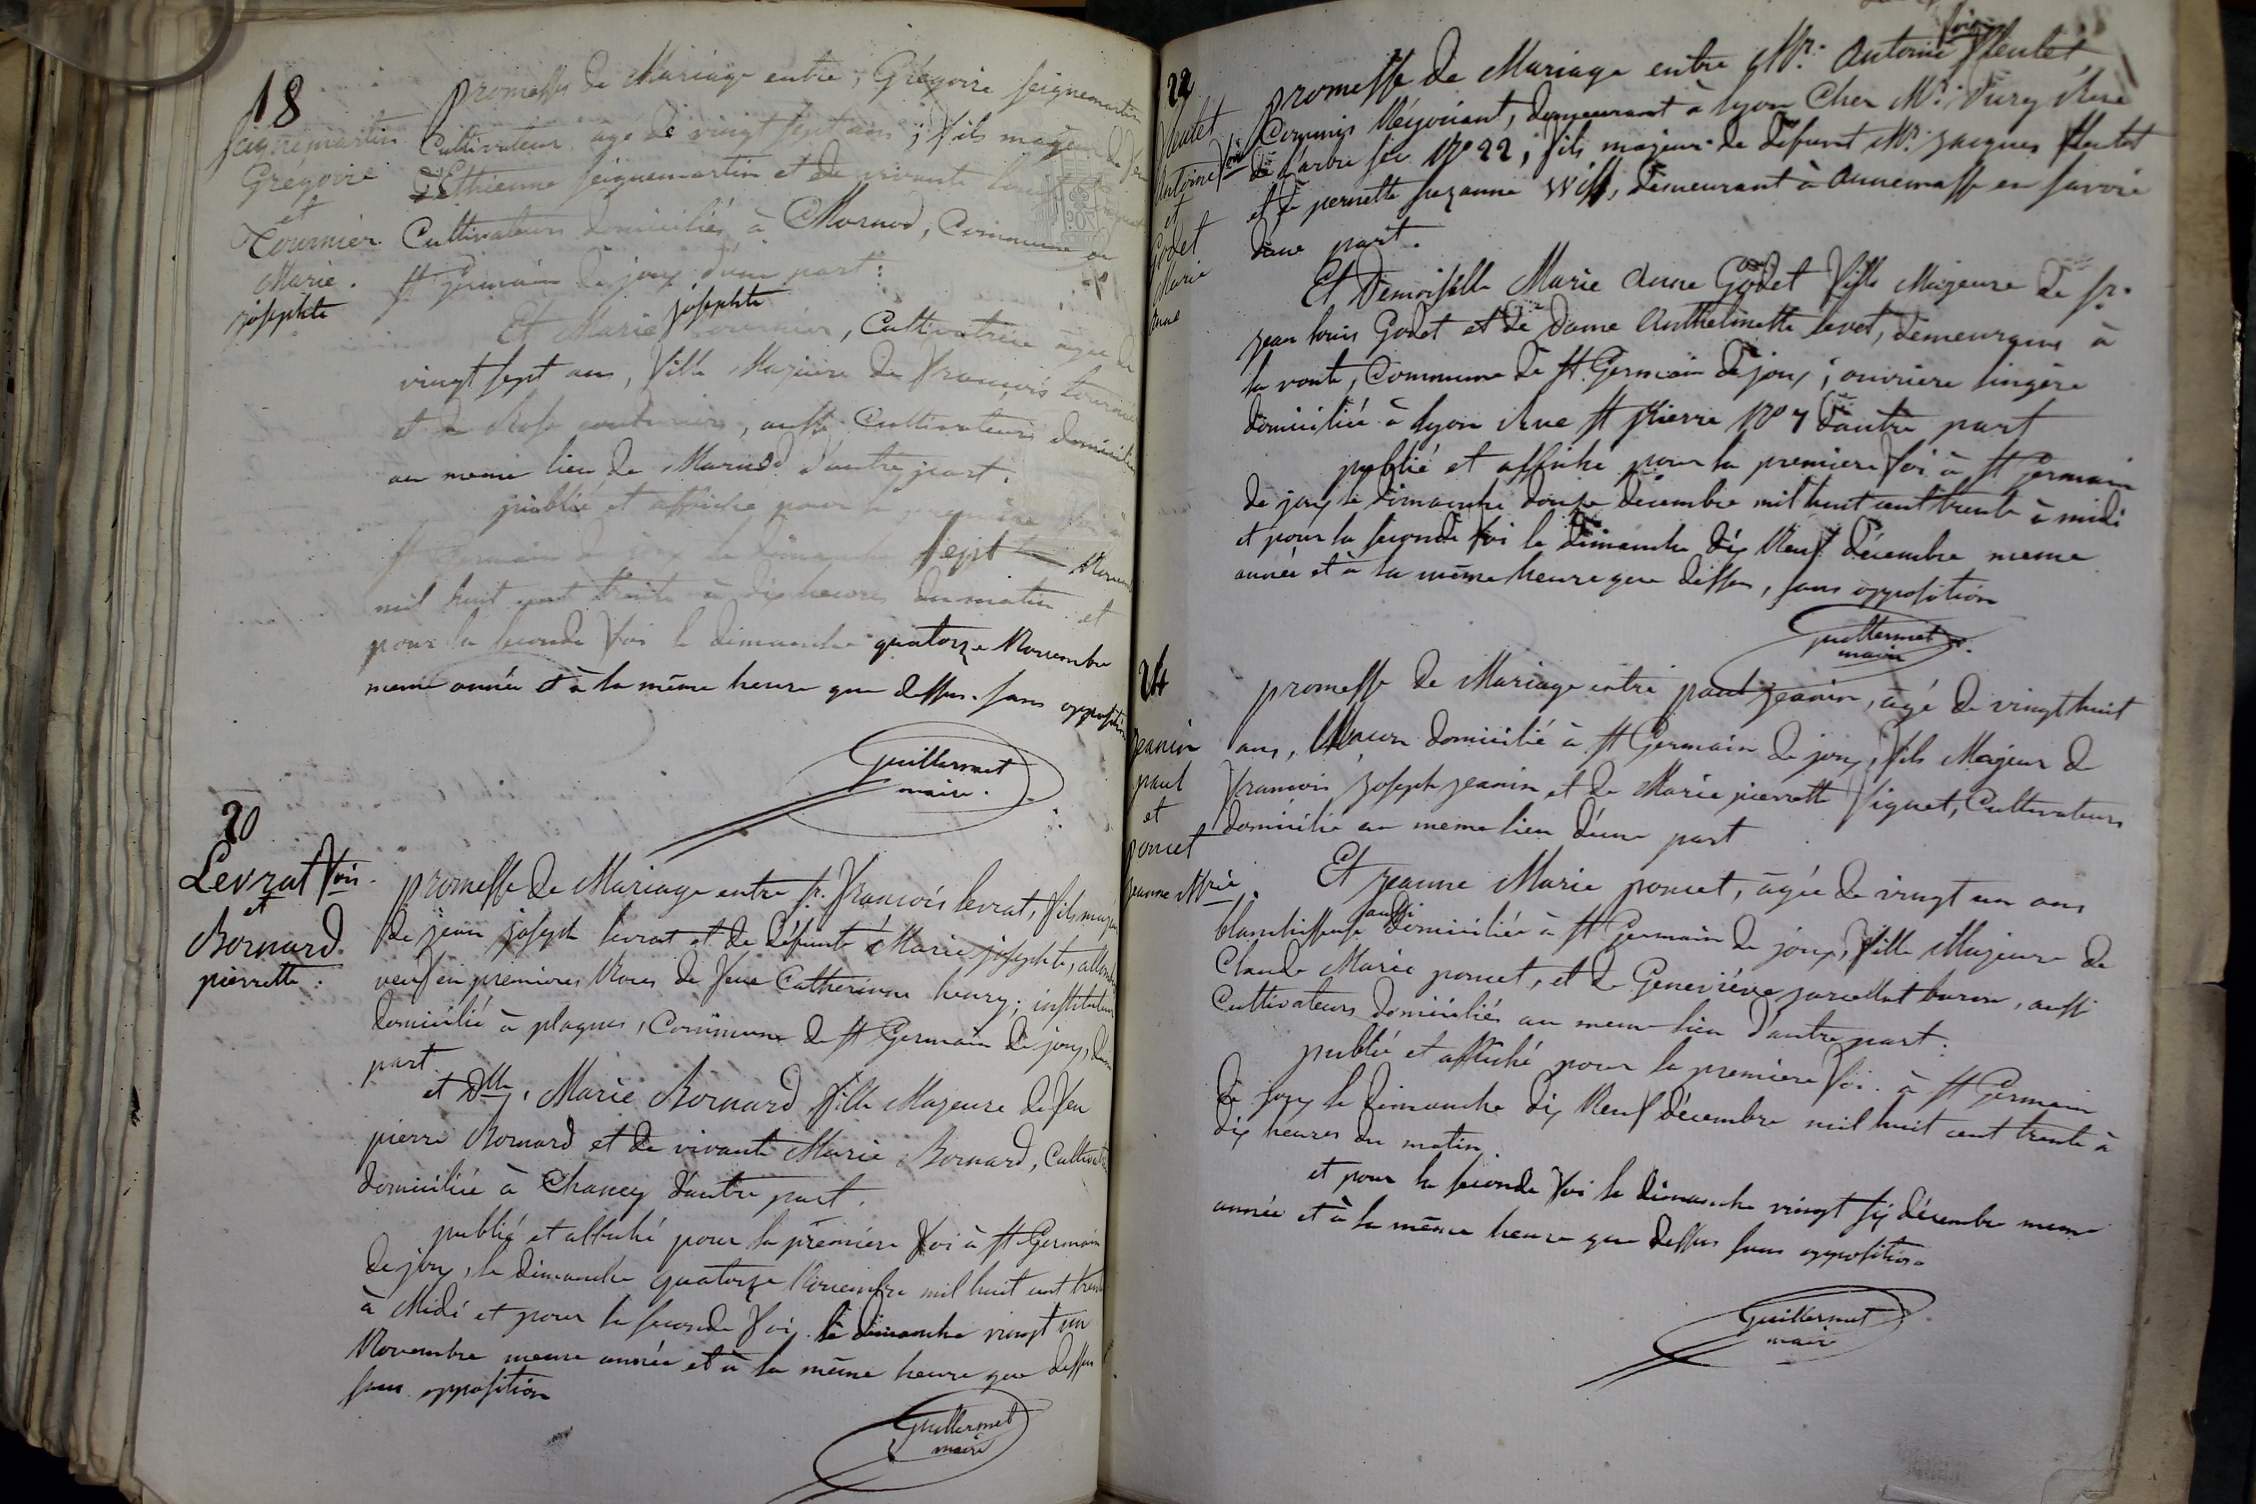 18
Seignemartin
Grégoire
et
Tournier
Marie.
josephte
promesse de Mariage entre, Grégoire Seignemartin
Cultivateur âgé de vingt sept ans, fils majeur de feu
Ethienne Seignemartin et de vivante
Cultivateurs domiciliés à Mornod, Commune de
St Germain de joux d'une part:
Et Marie josephte Tournier, Cultivatrice âgée de
vingt sept ans, fille Majeure de François tournier
et de Rose, aussi Cultivateurs domiciliés
au meme lieu de Mornod d'autre part.
publié et affiché pour la première foi à
St Germain de joux le dimanche sept Novembre
mil huit cent trente à dix heures du matin et
pour la seconde foi le dimanche quatorze Novembre
meme année et à la même heure que dessus. sans opposition
Guillermet
maire.
20
Levrat fois
et
Bornard
pierrette.
promesse de Mariage entre sr. françois levrat, fils majeur
de jean joseph levrat et de défunte Marie josephte,
veuf en premieres Noces de feue Catherinne henry; instituteur
domicilié à plagnes, Commune de St Germain de joux, d'une
part
et Dlle, Marie Bornard fille Majeure de feu
pierre Bornard et de vivante Marie Bornard, Cultivatrice
domiciliée à Chancy d'autre part.
publié et affiché pour la première foi à St Germain
de joux, le dimanche quatorze Novembre mil huit cent trente
à Midi et pour la seconde foi le dimanche vingt un
Novembre meme année et à la même heure que dessus
sans opposition
Guillermet
maire
22
Antoine fois
et
Godet
Marie
Anne
promesse de Mariage entre Mr. Antoine fois
Commis Négociant, demeurant à lyon Chez Mr. Rue
de l'arbre sec No 22, fils majeur de défunt Mr. Jacques
et de pernette suzanne Wiss, demeurant à Annemasse en savoie
dune part.
Et Demoiselle Marie Anne Godet fille Majeure de sr.
jean louis Godet et de Dame Anthelmette levet, demeurans à
la voute, Commune de St. Germain de joux; ouvriere lingère
domiciliée à lyon Rue St pierre No 7 d'autre part
publié et affiché pour la premiere foi à St Germain
de joux le dimanche douze décembre mil huit cent trente à midi
et pour la seconde foi le dimanche dix Neuf décembre meme
année et à la même heure que dessus, sans opposition
Guillermet
maire
24
Jeanin
paul
et
poncet
jeanne Mrie.
promesse de Mariage entre paul Jeanin, âgé de vingt huit
ans, Maçon domicilié à St Germain de joux, fils Majeur de
francois joseph Jeanin et de Marie pierrette Viquet, Cultivateurs
domicilié au meme lieu d'une part
Et jeanne Marie poncet, âgée de vingt un ans
blanchisseuse aussi domiciliée à St Germain de joux, fille Majeure de
Claude Marie poncet, et de Geneviève, aussi
Cultivateurs domiciliés au meme lieu d'autre part:
publié et affiché pour la première foi à St Germain
de joux le dimanche dix Neuf décembre mil huit cent trente à
dix heures du matin.
et pour la seconde foi le dimanche vingt six décembre meme
année et à la même heure que dessus sans opposition.
Guillermet
maire